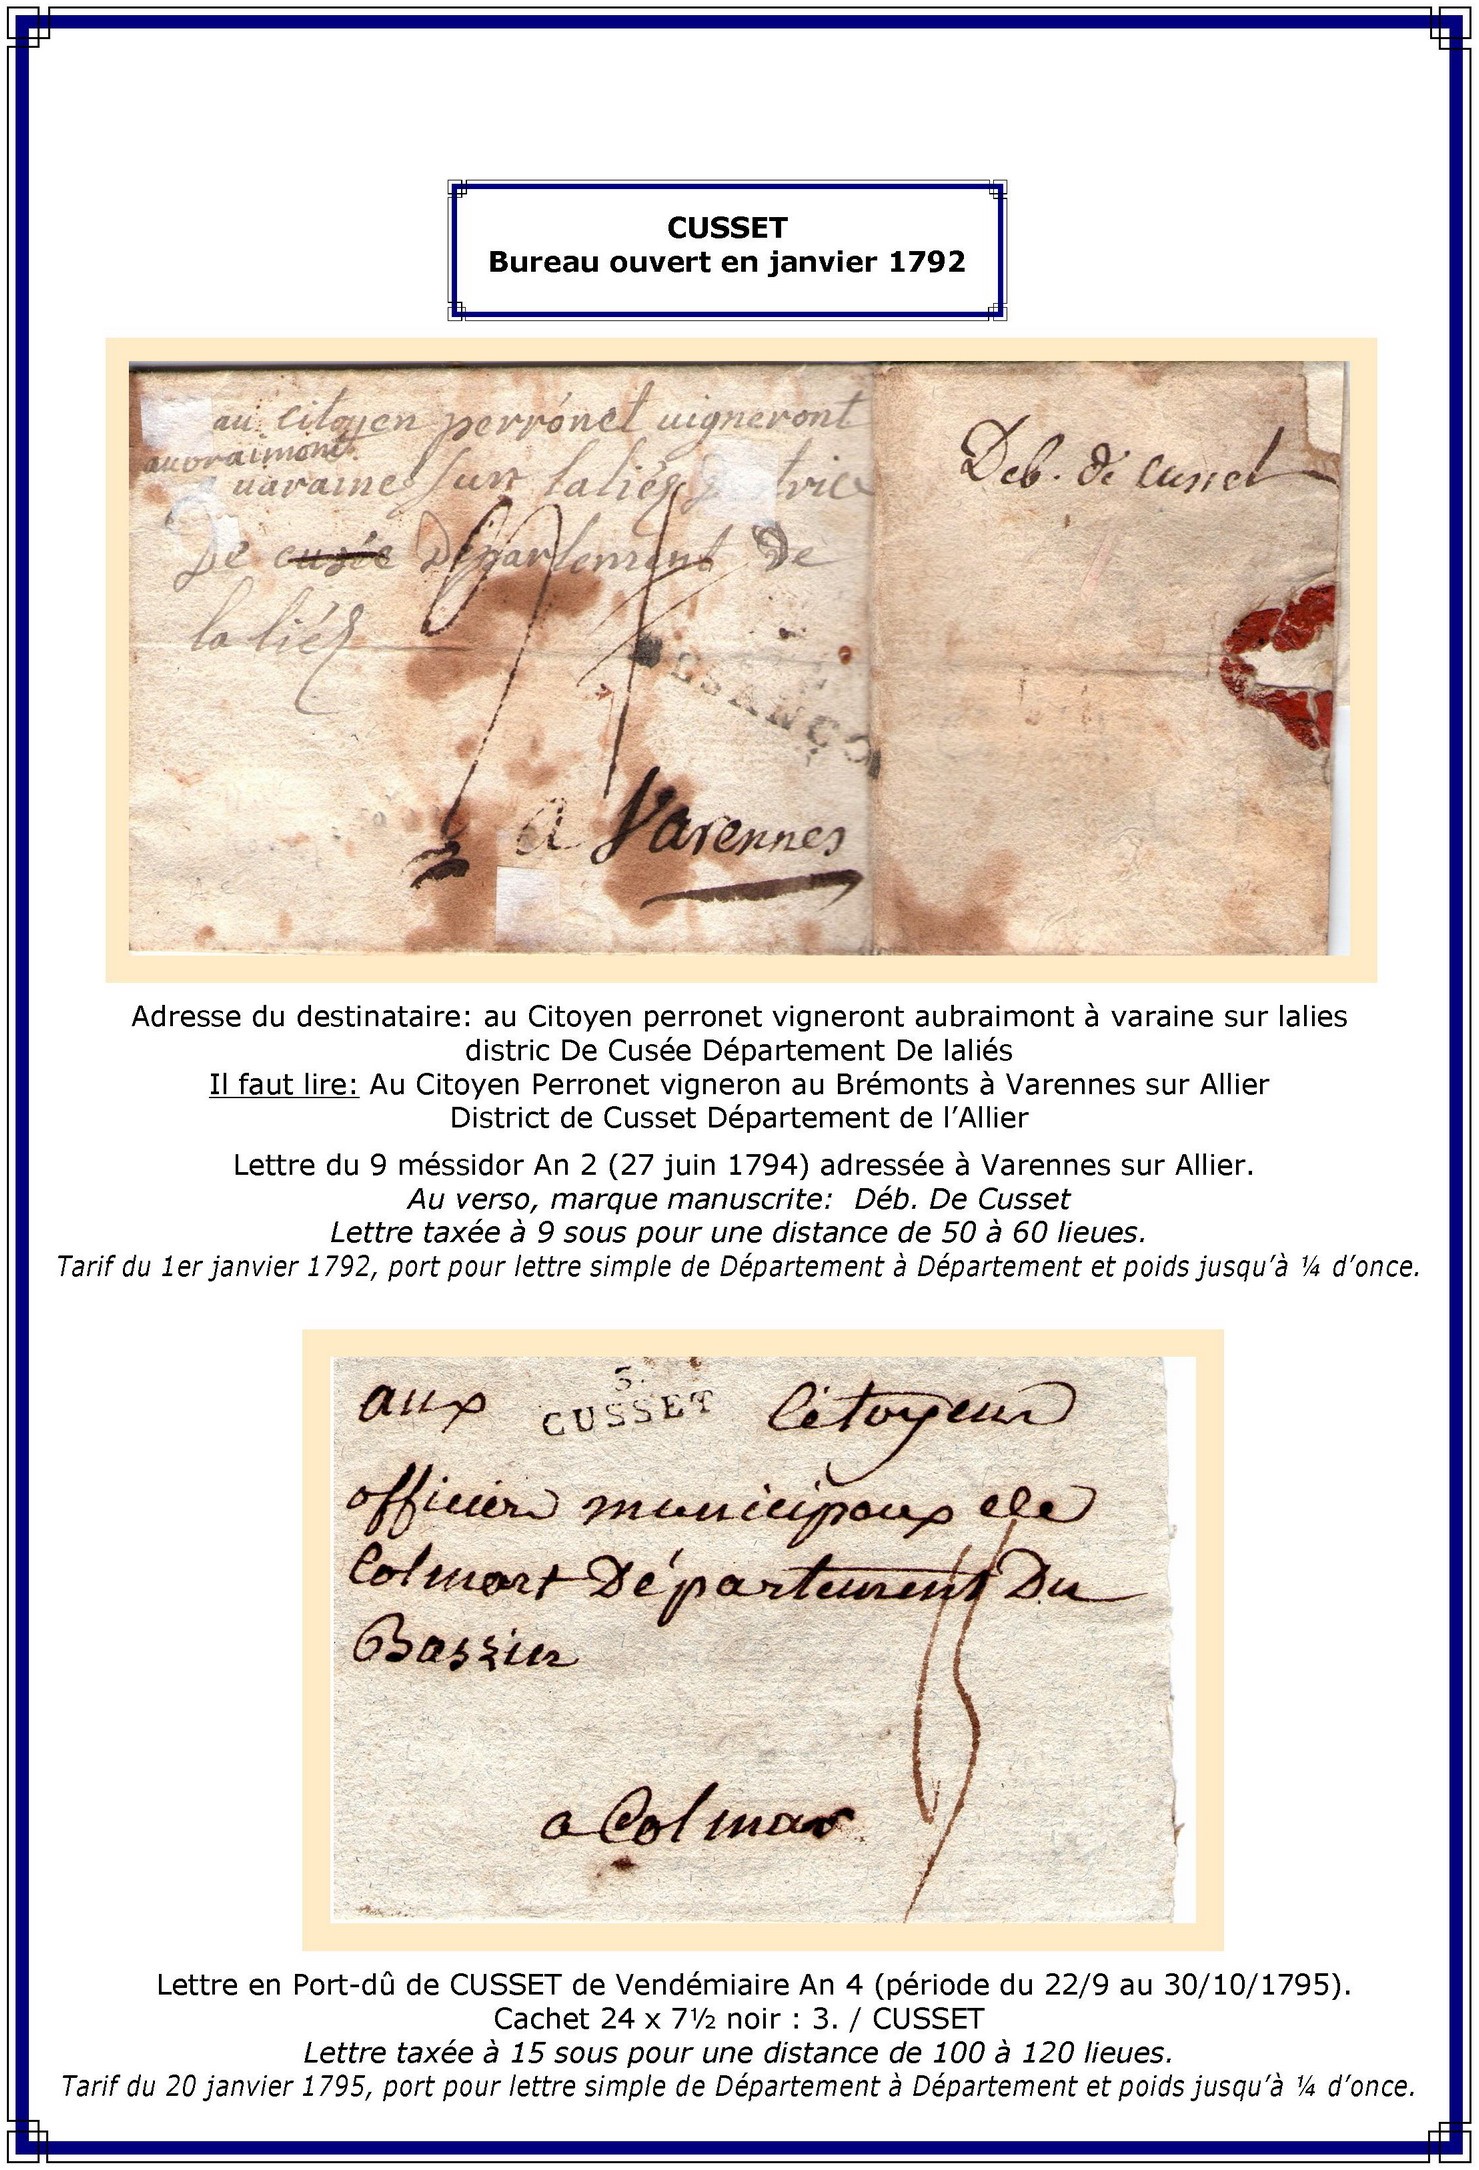 CUSSET
Bureau ouvert en janvier 1792
au citoyen perrónet uigneront
auvraimont
uaraines sur laliés trice
De cusée Département De
laliés
ESANÇO
a Varennes
Deb. de Cusset
Adresse du destinataire: au Citoyen perronet vigneront aubraimont à varaine sur lalies
distric De Cusée Département De laliés
Il faut lire: Au Citoyen Perronet vigneron au Brémonts à Varennes sur Allier
District de Cusset Département de l’Allier
Lettre du 9 méssidor An 2 (27 juin 1794) adressée à Varennes sur Allier.
Au verso, marque manuscrite: Déb. De Cusset
Lettre taxée à 9 sous pour une distance de 50 à 60 lieues.
Tarif du 1er janvier 1792, port pour lettre simple de Département à Département et poids jusqu’à ¼ d’once.
3.
aux CUSSET Citoyens
officiers municipaux de
Colmart Département Du
Bassin
15
a Colmar
Lettre en Port-dû de CUSSET de Vendémiaire An 4 (période du 22/9 au 30/10/1795).
Cachet 24 x 7½ noir : 3. / CUSSET
Lettre taxée à 15 sous pour une distance de 100 à 120 lieues.
Tarif du 20 janvier 1795, port pour lettre simple de Département à Département et poids jusqu’à ¼ d’once.